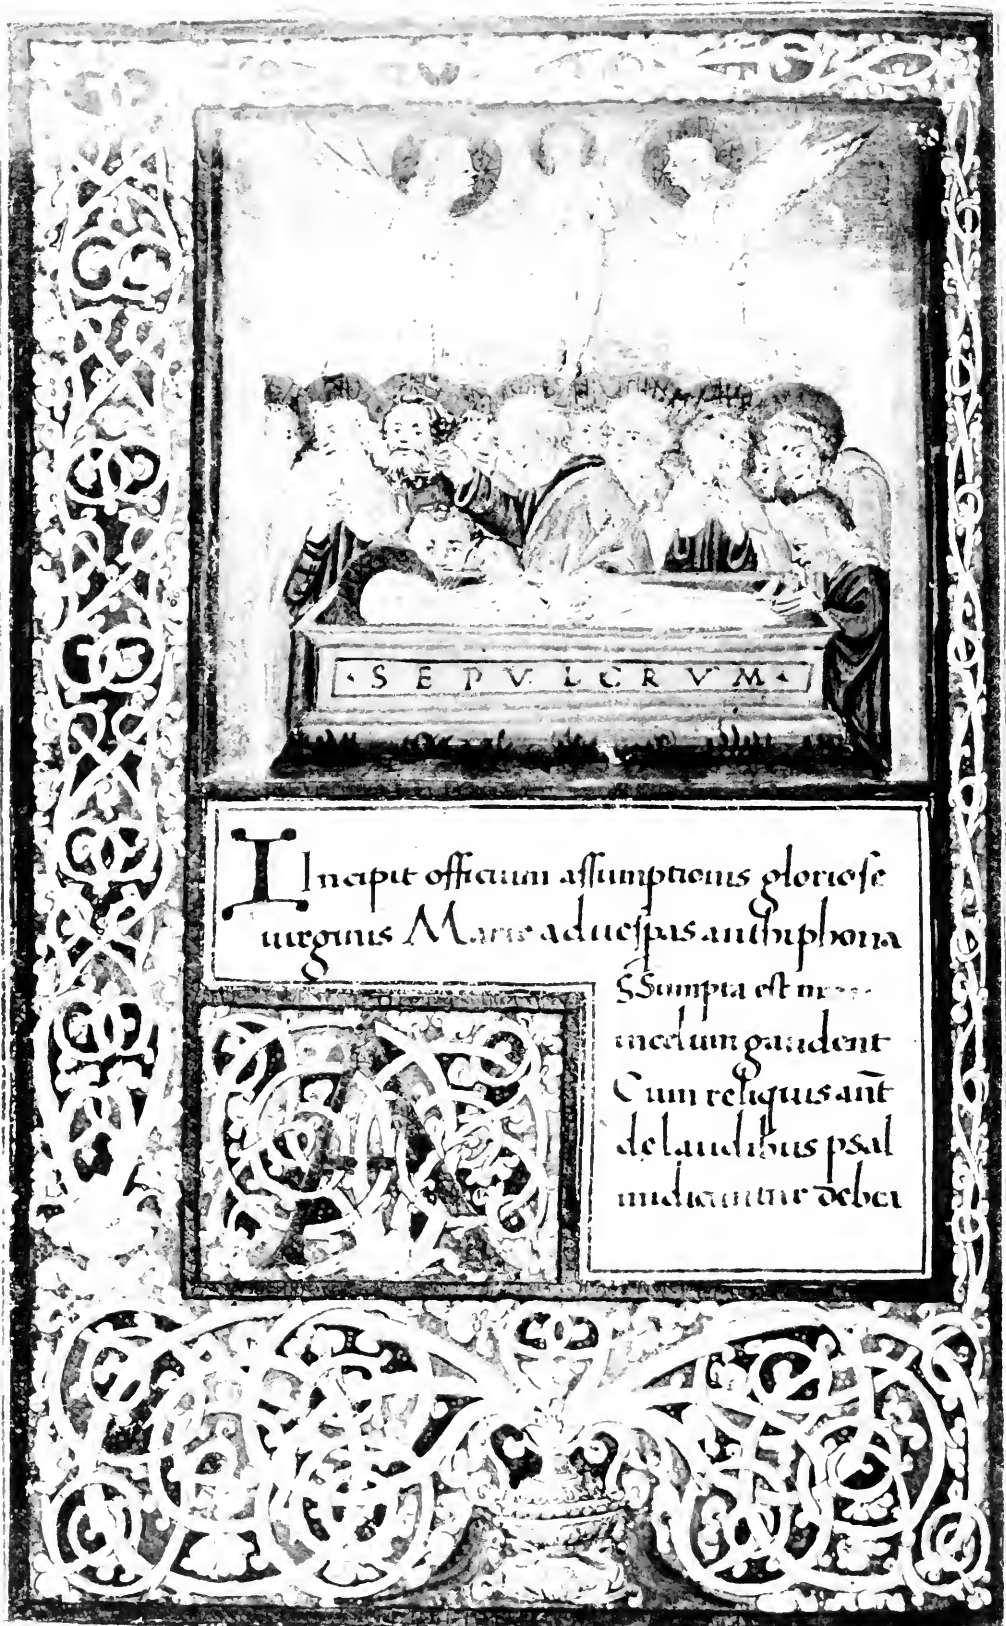 · S E P V L C R V M ·
I Incipit officium assumptionis gloriose
uirginis Marie ad uespas anthiphona
SSumpta est
in celum gaudent
Cum reliquis ant̄
de laudibus psal
mi dicuntur